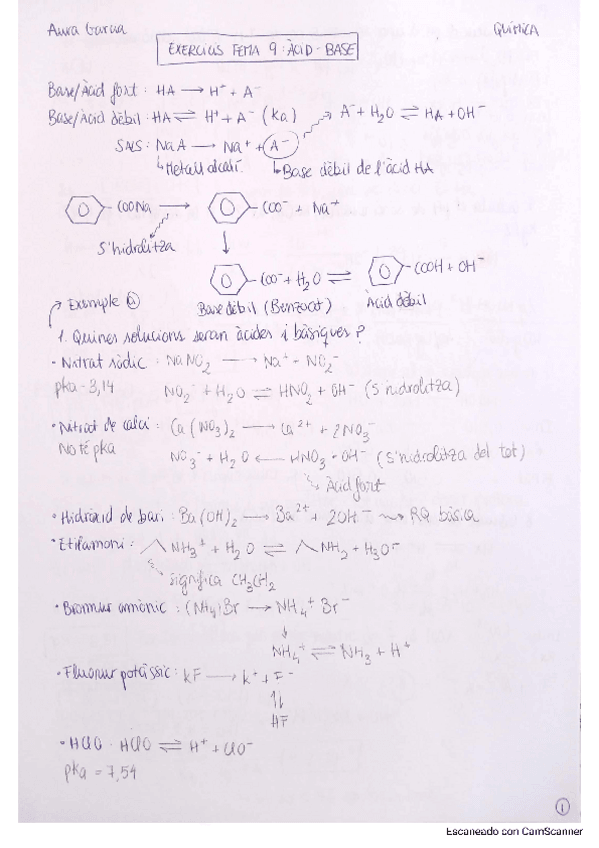 Aura Garcia QUÍMICA
EXERCICIS TEMA 9: ÀCID-BASE
Base/Àcid fort: HA → H⁺ + A⁻
Base/Àcid dèbil: HA ⇌ H⁺ + A⁻ (Ka) A⁻ + H₂O ⇌ HA + OH⁻
SALS: NaA → Na⁺ + A⁻
Metall alcalí. Base dèbil de l'àcid HA
COONa → COO⁻ + Na⁺
S'hidrolitza
COO⁻ + H₂O ⇌ COOH + OH⁻
Base dèbil (Benzoat) Àcid dèbil
Exemple
1. Quines solucions seran àcides i bàsiques?
• Nitrat sòdic: NaNO₂ → Na⁺ - NO₂⁻
pka - 3,14 NO₂⁻ + H₂O ⇌ HNO₂ + OH⁻ (S'hidrolitza)
• Nitrat de calci: Ca(NO₃)₂ → Ca²⁺ + 2NO₃⁻
No té pka NO₃⁻ + H₂O ← HNO₃ + OH⁻ (S'hidrolitza del tot)
Àcid fort
• Hidròxid de bari: Ba(OH)₂ → Ba²⁺ + 2OH⁻ RQ bàsica
• Etilamoni: NH₃⁺ + H₂O ⇌ NH₂ + H₃O⁻
significa CH₃CH₂
• Bromur amònic: (NH₄)Br → NH₄⁺ Br⁻
NH₄⁺ ⇌ NH₃ + H⁺
• Fluorur potàssic: KF → K⁺ + F⁻
HF
• HClO · HClO ⇌ H⁺ + ClO⁻
pka = 7,54
1
Escaneado con CamScanner